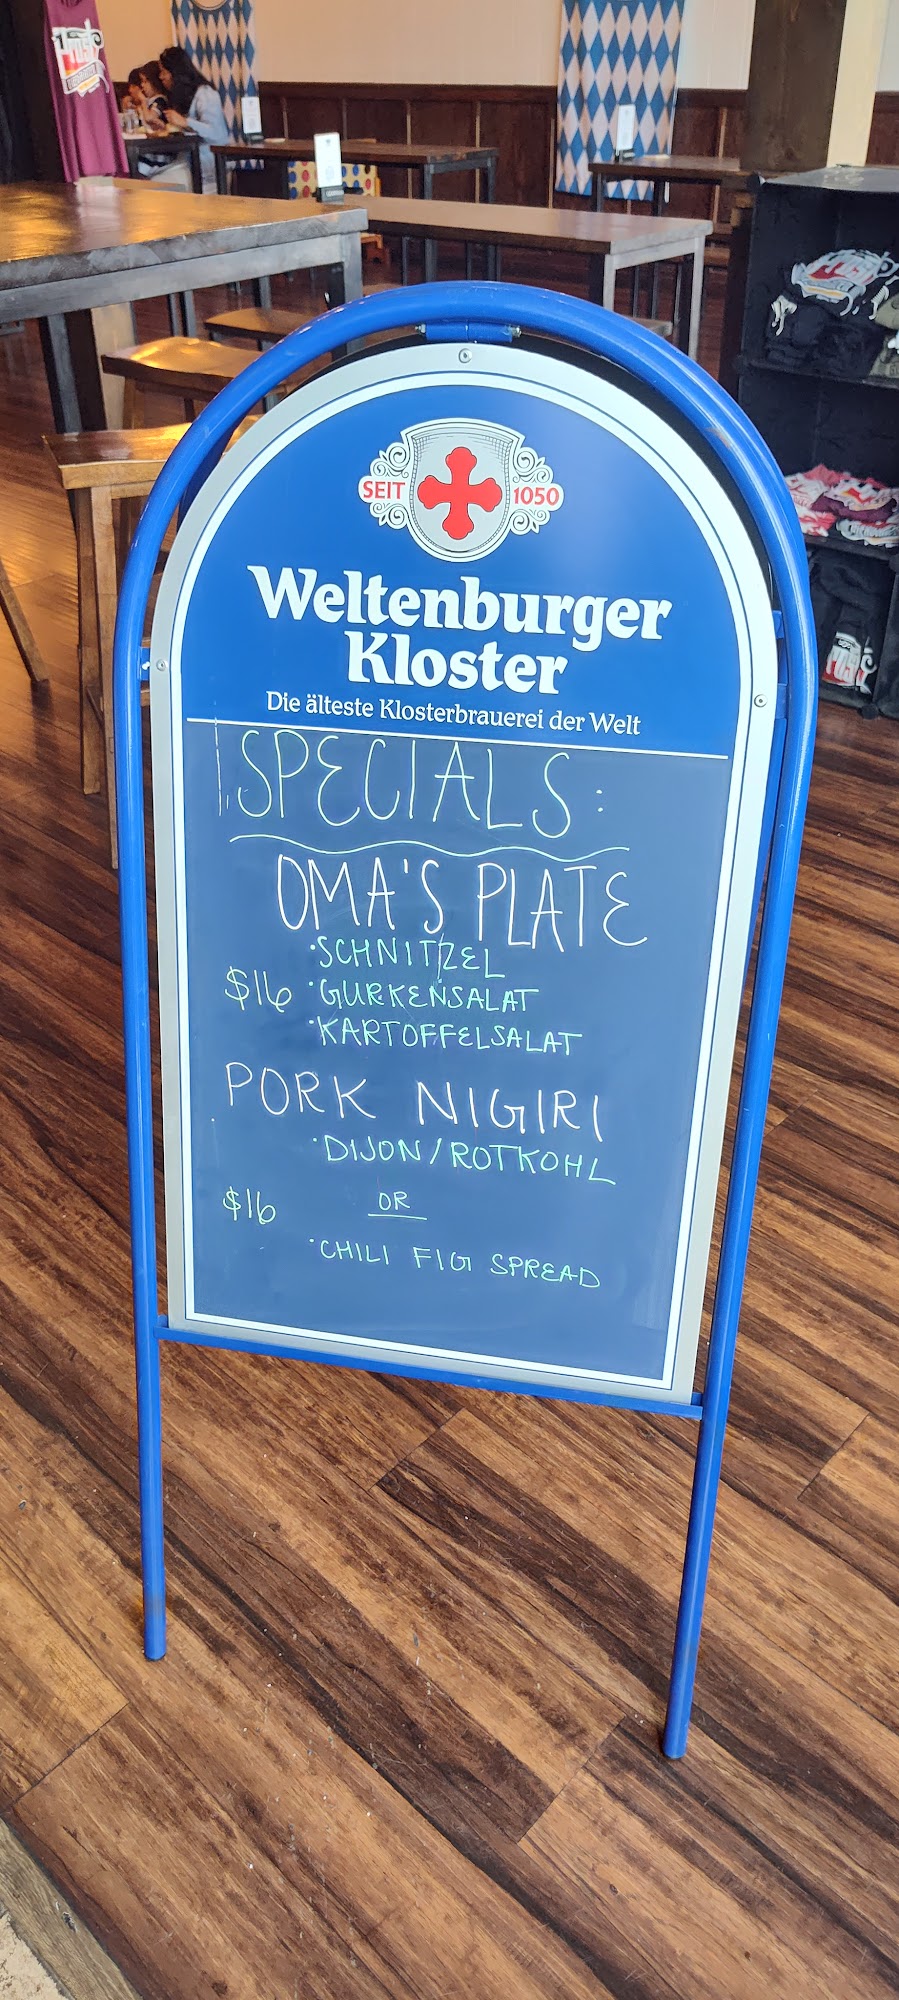 SEIT 1050
Weltenburger
Kloster
Die älteste Klosterbrauerei der Welt
SPECIALS:
OMA'S PLATE
·SCHNITZEL
$16 ·GURKENSALAT
·KARTOFFELSALAT
PORK NIGIRI
·DIJON/ROTKOHL
$16 OR
·CHILI FIG SPREAD